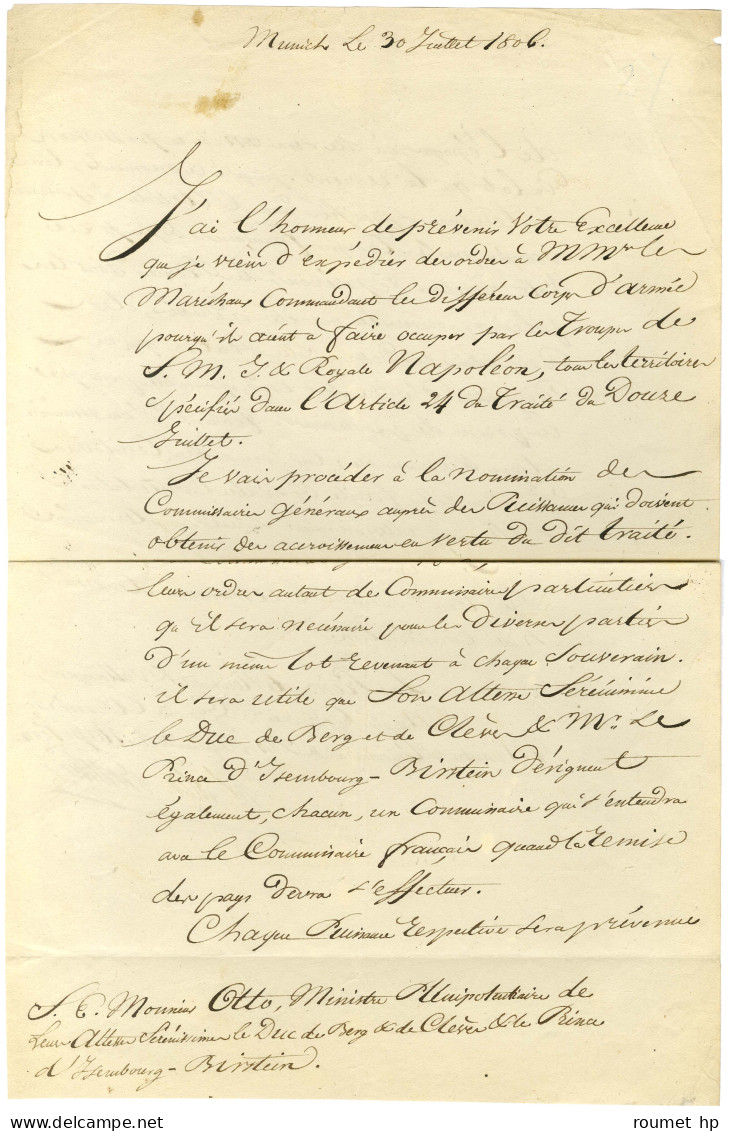 Munich Le 30 Juillet 1806.
J'ai l'honneur de prévenir Votre Excellence
que je viens d'expédier des ordres à MM.rs les
Maréchaux Commandant les différens Corps d'armée
pourqu'ils aient à faire occuper par les Troupes de
S. M. I. & Royale Napoléon, tous les territoires
Spécifiés dans l'Article 24 du Traité du Douze
Juillet.
Je vais procéder à la nomination des
Commissaires généraux auprès des Puissances qui doivent
obtenir des accroissemens en vertu du dit traité.
leurs ordres autant de Commissaires particuliers
qu'il sera nécéssaire pour les diverses parties
d'un même lot revenant à chaque Souverain.
il sera utile que Son Altesse Sérénissime
le Duc de Berg et de Clèves & Mr. Le
Prince d'Isembourg-Birstein désignent
également, chacun, un Commissaire qui s'entendra
avec le Commissaire français quand la remise
des pays devra s'effectuer.
Chaque Puissance respective sera prévenue
S. E. Monsieur Otto, Ministre Plénipotentiaire de
Leurs Altesses Sérénissimes le Duc de Berg & de Clèves & le Prince
d'Isembourg-Birstein.
roumet hp